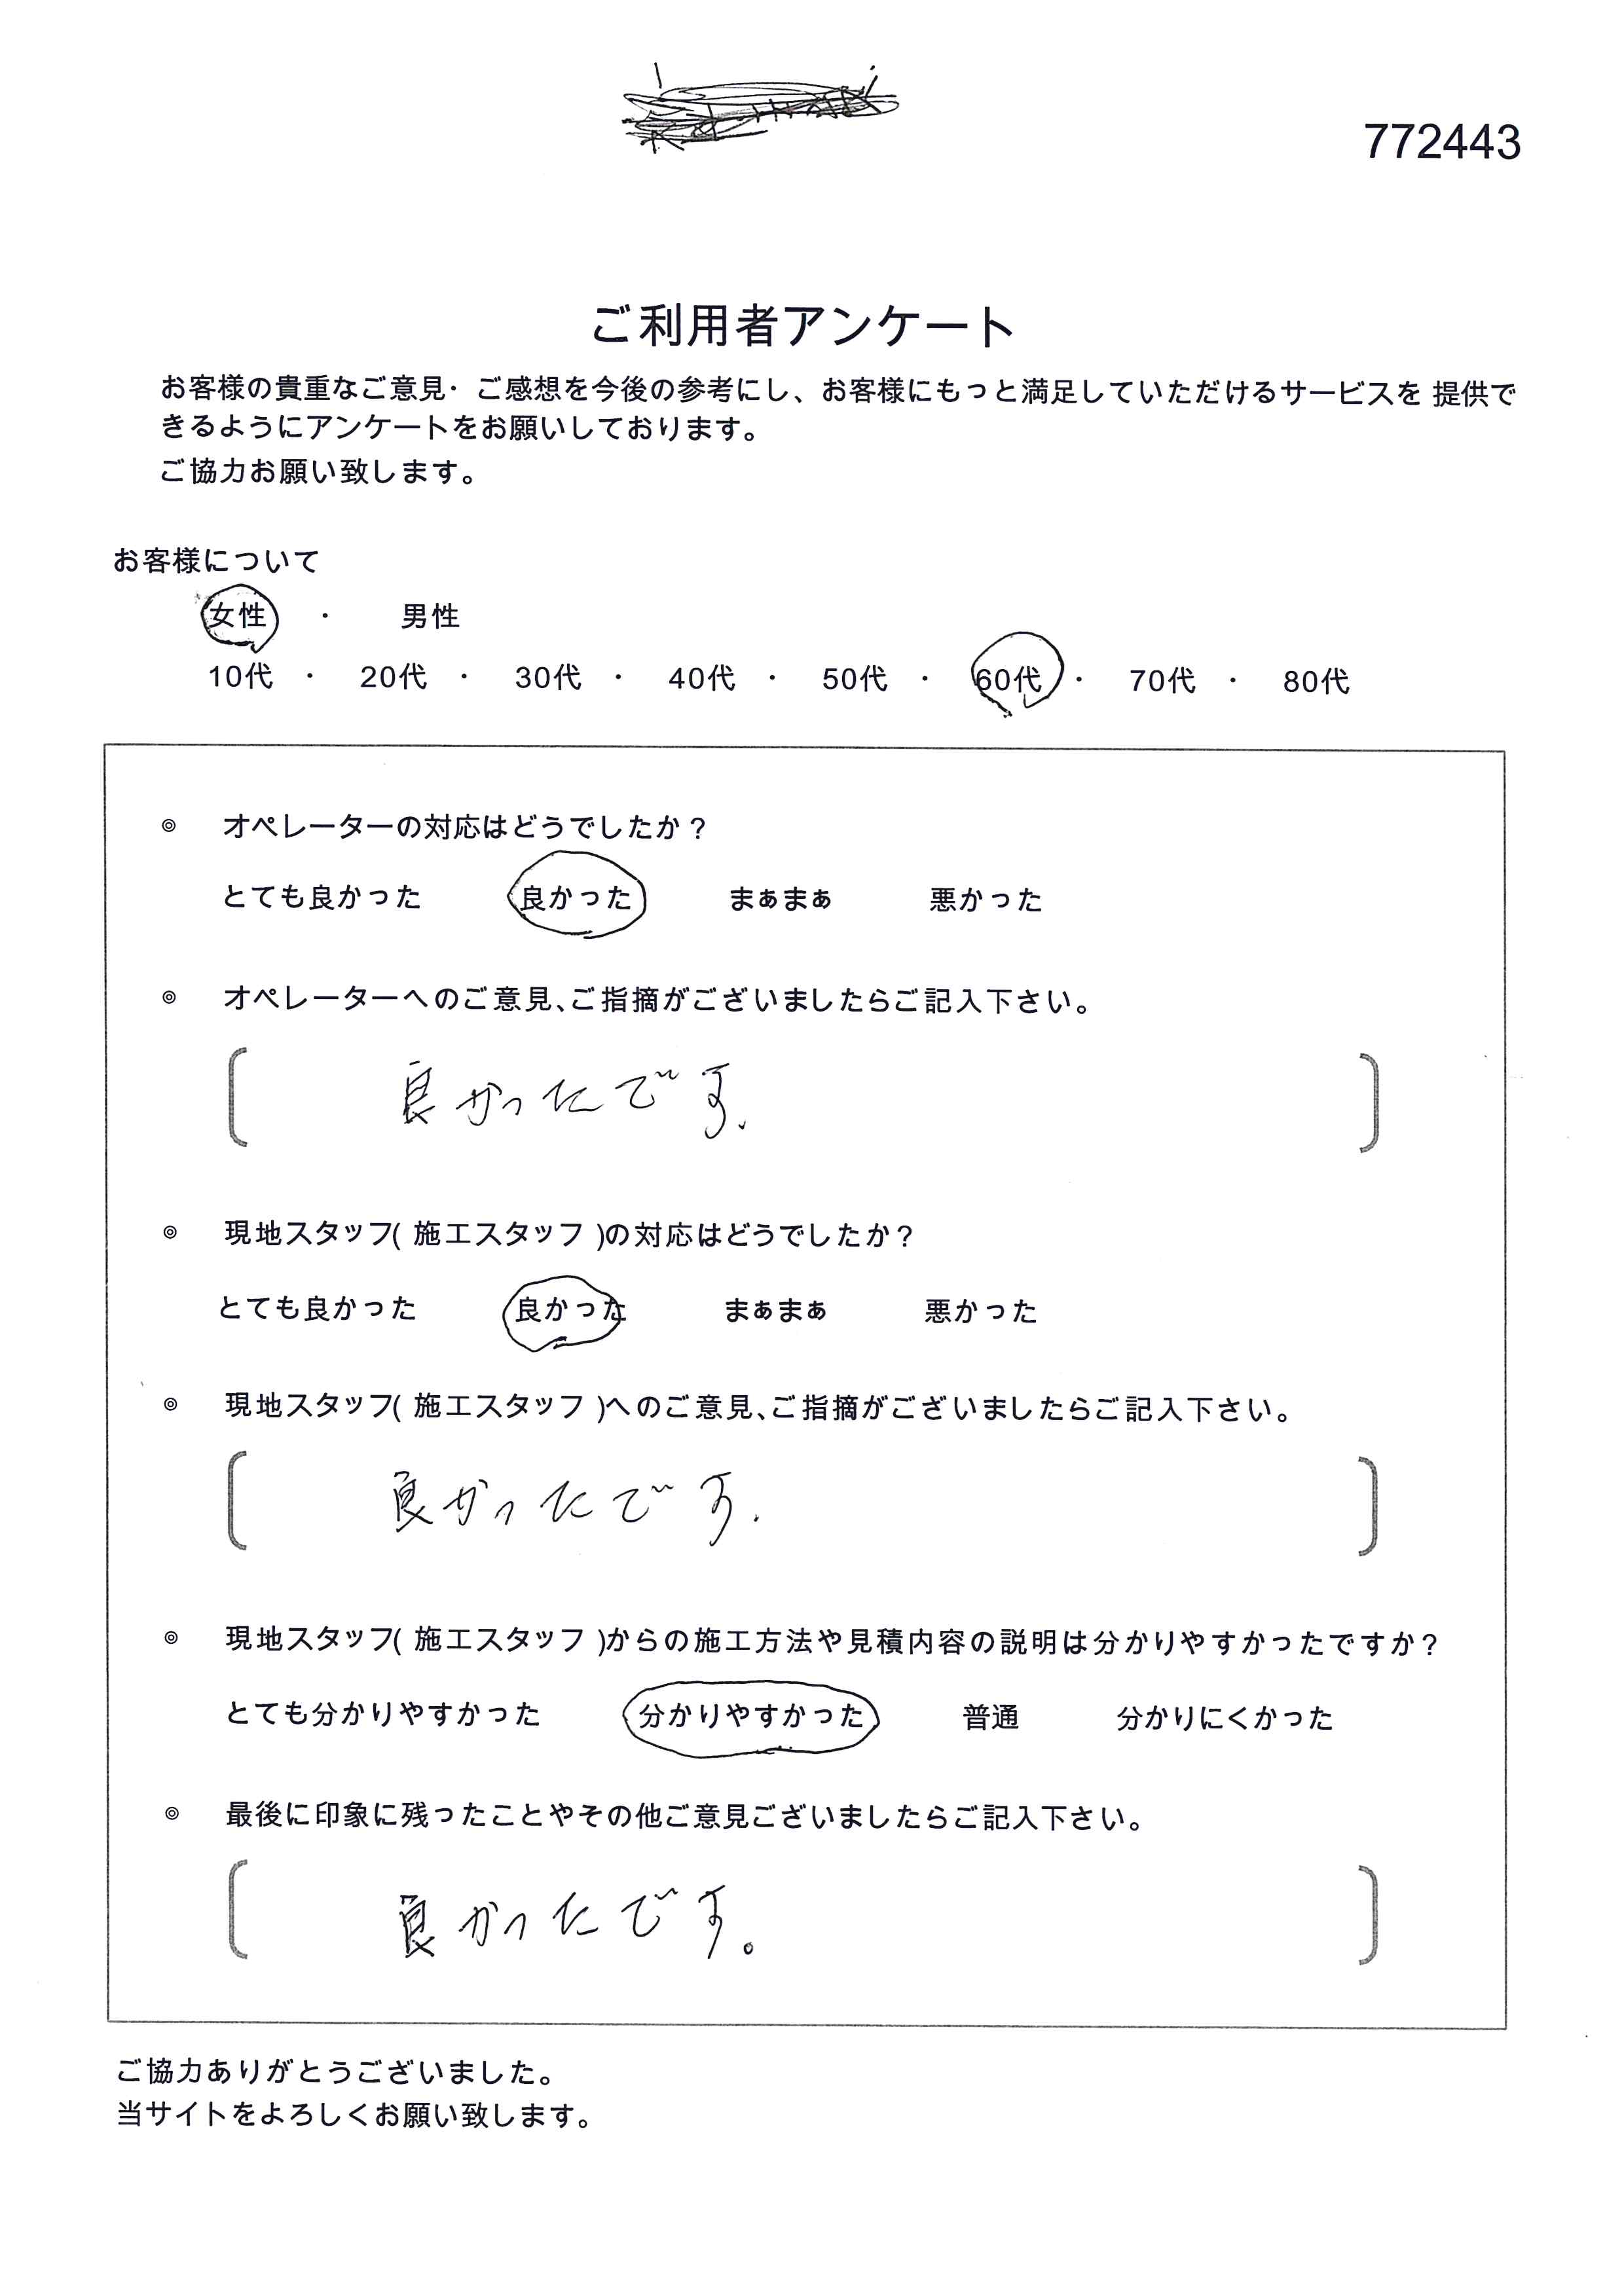 772443
ご利用者アンケート
お客様の貴重なご意見・ご感想を今後の参考にし、お客様にもっと満足していただけるサービスを 提供で
きるようにアンケートをお願いしております。
ご協力お願い致します。
お客様について
女性 ・ 男性
10代 ・ 20代 ・ 30代 ・ 40代 ・ 50代 ・ 60代 ・ 70代 ・ 80代
◎ オペレーターの対応はどうでしたか？
とても良かった 良かった まぁまぁ 悪かった
◎ オペレーターへのご意見、ご指摘がございましたらご記入下さい。
良かったです.
◎ 現地スタッフ( 施工スタッフ )の対応はどうでしたか？
とても良かった 良かった まぁまぁ 悪かった
◎ 現地スタッフ( 施工スタッフ )へのご意見、ご指摘がございましたらご記入下さい。
良かったです.
◎ 現地スタッフ( 施工スタッフ )からの施工方法や見積内容の説明は分かりやすかったですか？
とても分かりやすかった 分かりやすかった 普通 分かりにくかった
◎ 最後に印象に残ったことやその他ご意見ございましたらご記入下さい。
良かったです。
ご協力ありがとうございました。
当サイトをよろしくお願い致します。